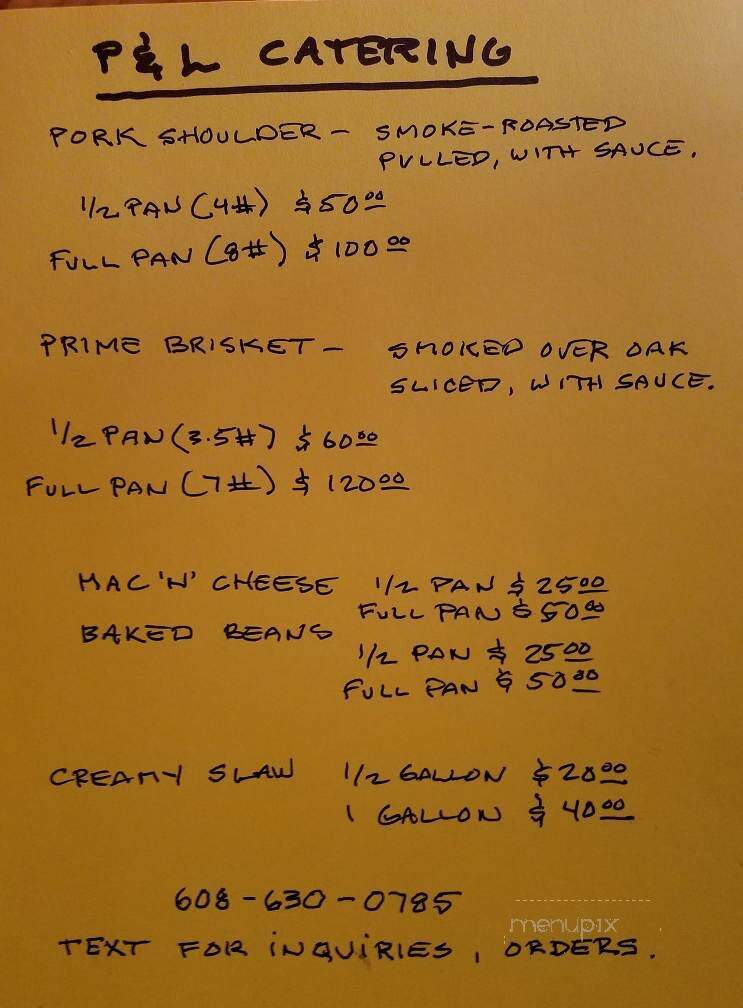 P & L CATERING
PORK SHOULDER - SMOKE-ROASTED
PULLED, WITH SAUCE.
1/2 PAN (4#) $50.00
FULL PAN (8#) $100.00
PRIME BRISKET - SMOKED OVER OAK
SLICED, WITH SAUCE.
1/2 PAN (3.5#) $60.00
FULL PAN (7#) $120.00
MAC 'N' CHEESE 1/2 PAN $25.00
FULL PAN $50.00
BAKED BEANS
1/2 PAN $25.00
FULL PAN $50.00
CREAMY SLAW 1/2 GALLON $20.00
1 GALLON $40.00
608-630-0785
menupix
TEXT FOR INQUIRIES, ORDERS.